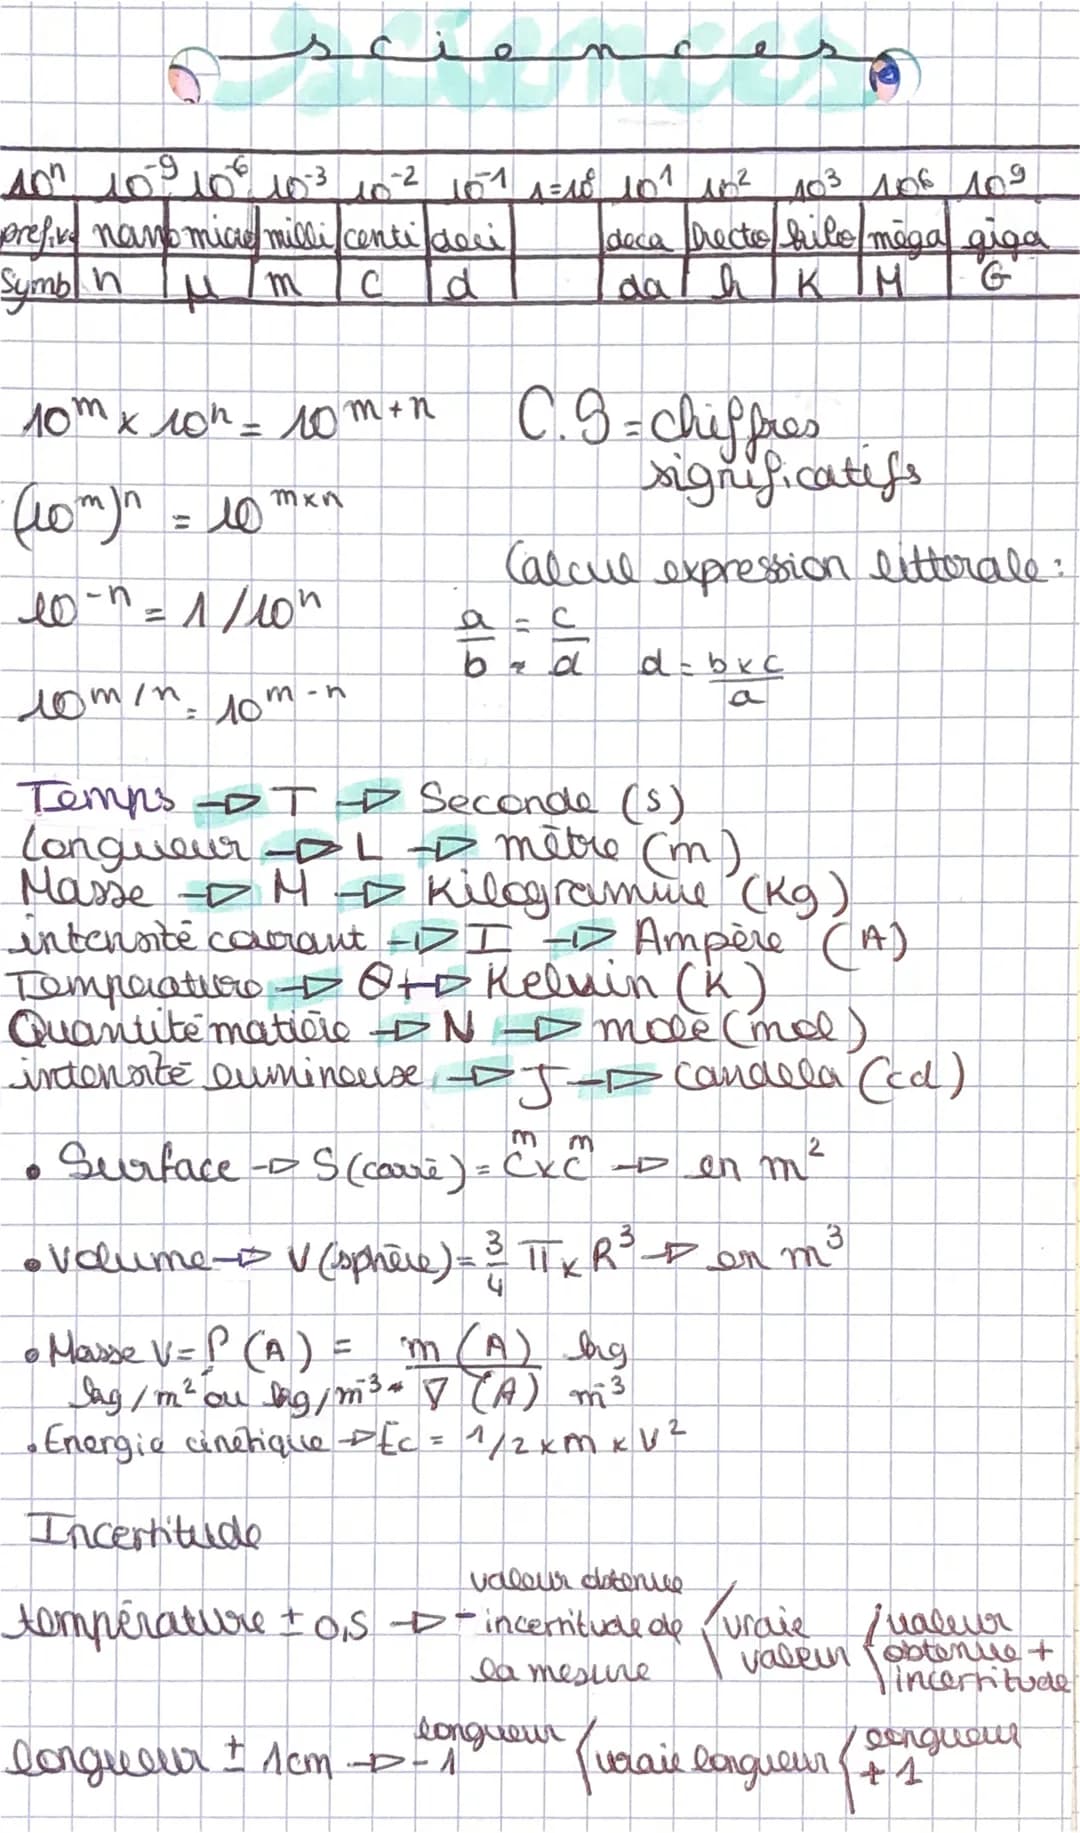 sciences
10ⁿ 10⁻⁹ 10⁻⁶ 10⁻³ 10⁻² 10⁻¹ 1=10⁰ 10¹ 10² 10³ 10⁶ 10⁹
prefixe nano micro milli centi deci deca hecto kilo méga giga
Symb n μ m c d da h K M G
10ᵐ x 10ⁿ = 10ᵐ⁺ⁿ C.S = chiffres
significatifs
(10ᵐ)ⁿ = 10ᵐˣⁿ
Calcul expression littorale :
10⁻ⁿ = 1/10ⁿ
a/b = c/d d = bxc/a
10ᵐ/ⁿ = 10ᵐ⁻ⁿ
Temps → T → Seconde (s)
Longueur → L → mètre (m)
Masse → M → Kilogramme (Kg)
intensité courant → I → Ampère (A)
Température → Θ → Kelvin (K)
Quantité matière → N → mole (mol)
intensité lumineuse → J → candela (cd)
• Surface → S (carré) = c x c → en m²
m m
• Volume → V (sphère) = 3/4 π x R³ → en m³
• Masse V = ρ (A) = m (A) kg
kg/m² ou kg/m⁻³ V (A) m⁻³
• Energie cinétique → Ec = 1/2 x m x v²
Incertitude
température ± 0,5 → valeur obtenue - incertitude de la mesure < vraie valeur < valeur obtenue + incertitude
longueur ± 1cm → longueur - 1 < vraie longueur < longueur + 1